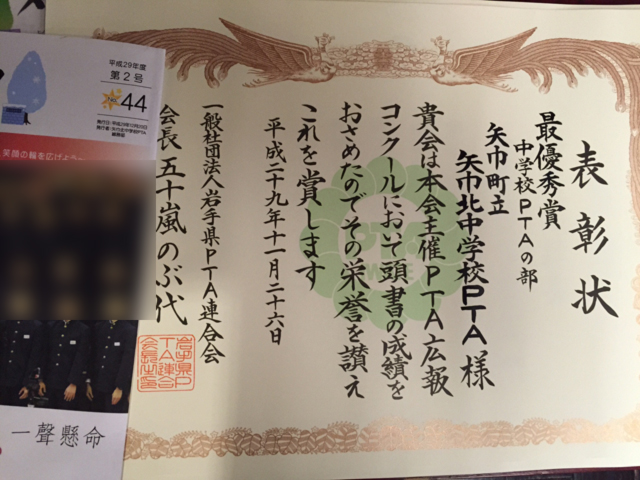 表彰状
最優秀賞
中学校PTAの部
矢巾町立
矢巾北中学校PTA 様
貴会は本会主催PTA広報
コンクールにおいて頭書の成績を
おさめたのでその栄誉を讃え
これを賞します
平成二十九年十一月二十六日
一般社団法人岩手県PTA連合会
会長 五十嵐のぶ代
岩手県P
TA連合
会長之印
PTA
平成29年度
第2号
44
笑顔の輪を広げよう
一聲懸命